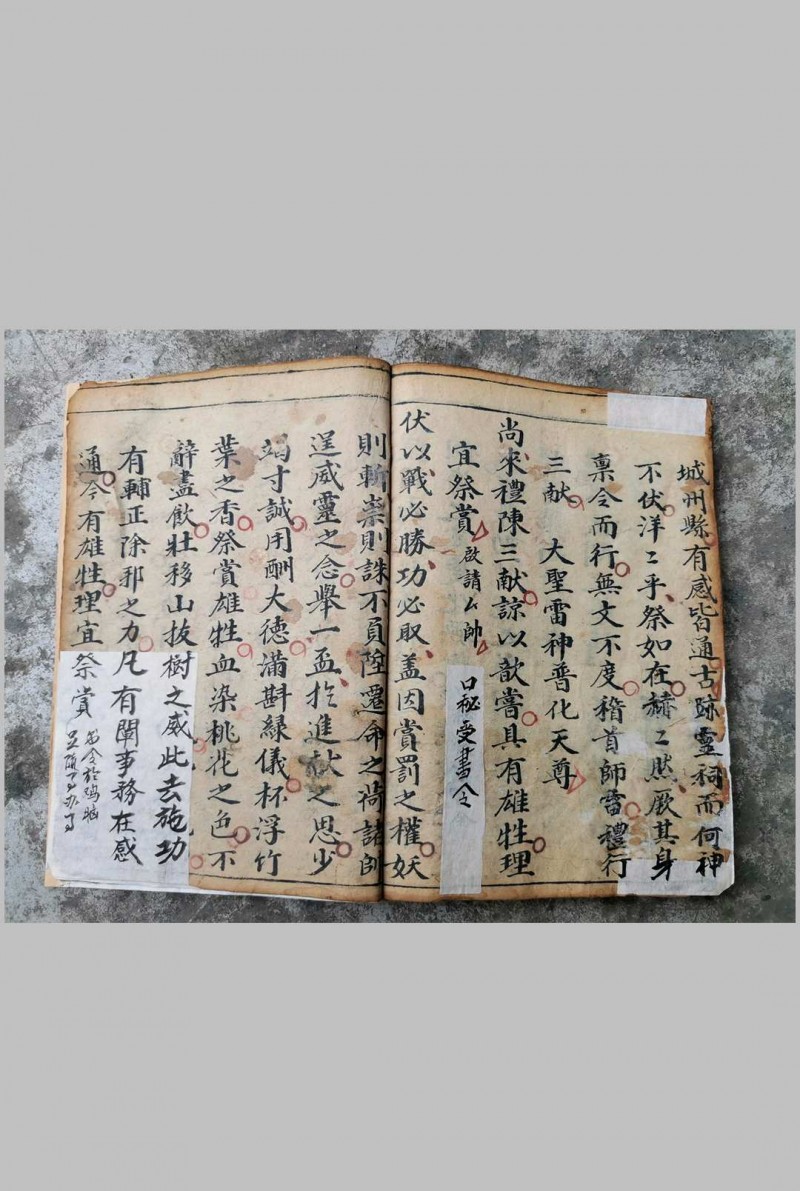 城州縣有感皆通古跡靈祠而何神
不伏洋〻乎祭如在赫〻然厥其身
稟令而行無文不度稽首師雷禮行
三献 大聖雷神普化天尊
尚來禮陳三献諒以歆嘗具有雄牲理
宜祭賞 啟請厶帥
口秘受書令
伏以戰必勝功必取蓋因賞罰之權妖
則斬祟則誅不負陞遷命之荷諸帥
逞威靈之念舉一盃拴進献之思少
竭寸誠用酬大德滿斟緑儀杯浮竹
葉之香祭賞雄牲血染桃花之色不
辭盡飲壮移山拔樹之威此去施功
有輔正除邪之力凡有闡事務在感
通今有雄牲理宜祭賞